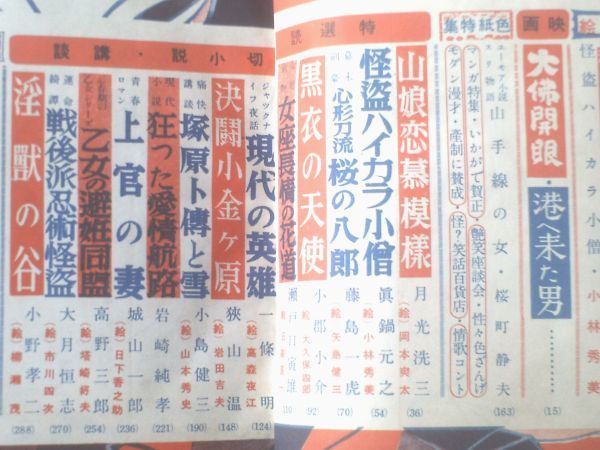 絵
怪盗ハイカラ小僧・小林秀美
映画
大佛開眼・港へ来た男
(15)
色紙特集
ユーモア小説
スリ物語
山手線の女・桜町静夫
(163)
マンガ特集・いかがで賀正・艶笑座談会・性々色ざんげ
モダン漫才・産制に賛成・怪?笑話百貨店・情歌コント
特選読
山娘恋慕模様
月光洗三
(絵)岡本爽太
(36)
怪盗ハイカラ小僧
眞鍋元之
(絵)小林秀美
(54)
幕末
剣豪
心形刀流 桜の八郎
藤島一虎
(絵)矢島健三
(70)
黒衣の天使
小郡小介
(絵)大久保四郎
(92)
女座長情の花道
瀬戸口寅雄
110
切小説・講談
ジャックナイフ夜話
現代の英雄
一條明
(絵)高森夜江
(124)
決闘小金ヶ原
狹山温
(絵)岩田吉夫
(148)
痛快
講談
塚原卜傳と雪
小島健三
(絵)山本秀史
(190)
現代
小説
狂った愛情航路
岩崎純孝
(221)
青春
ロマン
上官の妻
城山一郎
(絵)日下香之助
(236)
乙女の避妊同盟
高野三郎
(絵)塔崎釥夫
(254)
運命
綺譚
戦後派忍術怪盗
大月恒志
(絵)市川四次
(270)
淫獸の谷
小野孝二
(絵)柳瀬茂
(288)